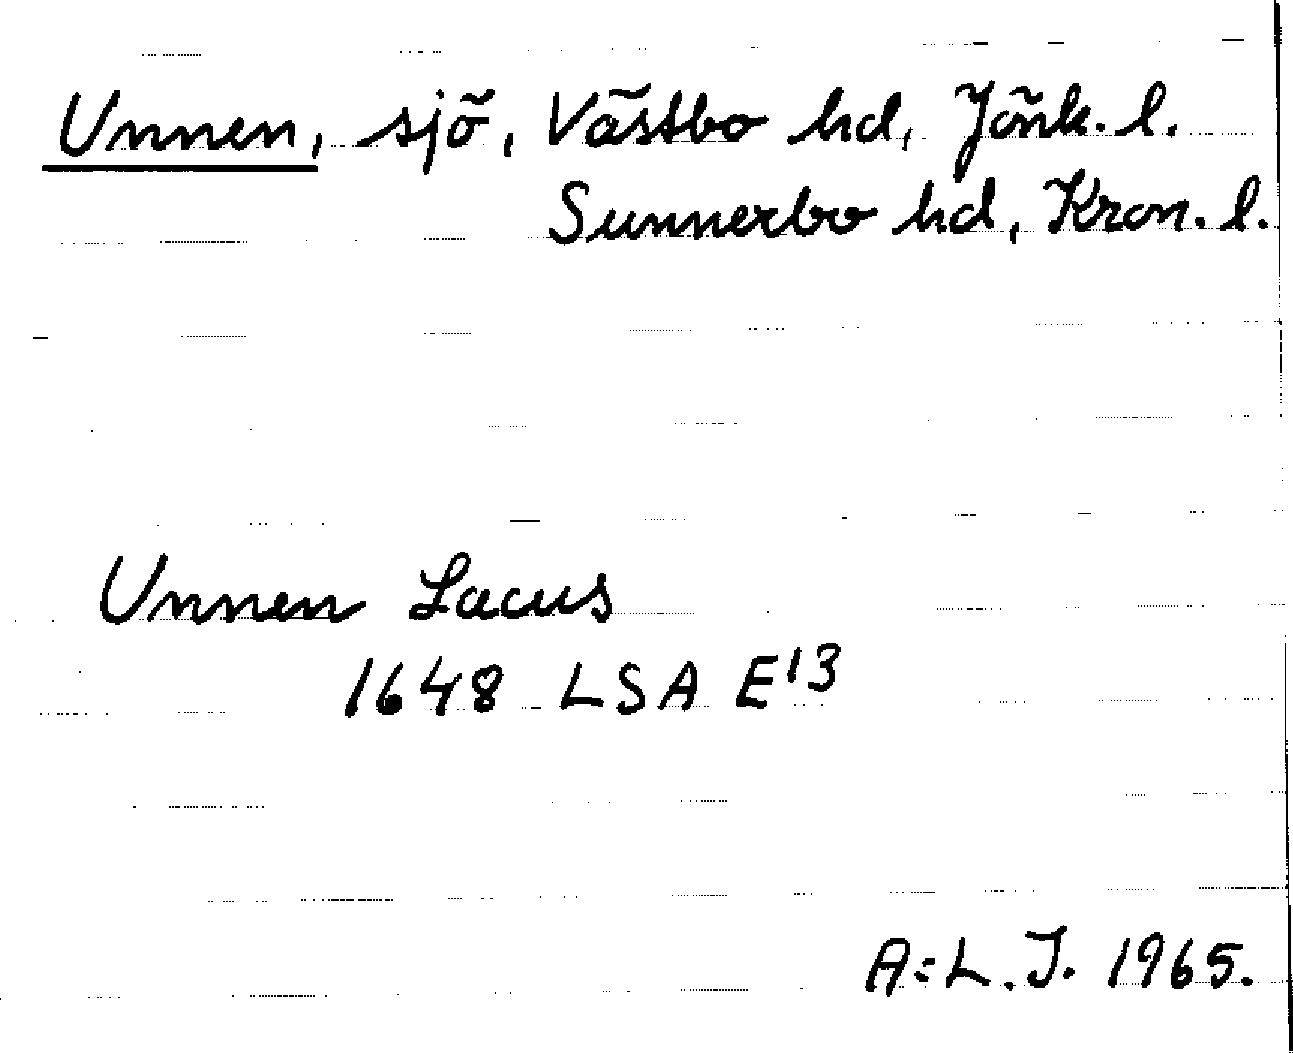 Unnen, sjö, Västbo hd, Jönk. l.
Sunnerbo hd, Kron. l.
Unnen Lacus
1648 LSA E13
A:L. J. 1965.